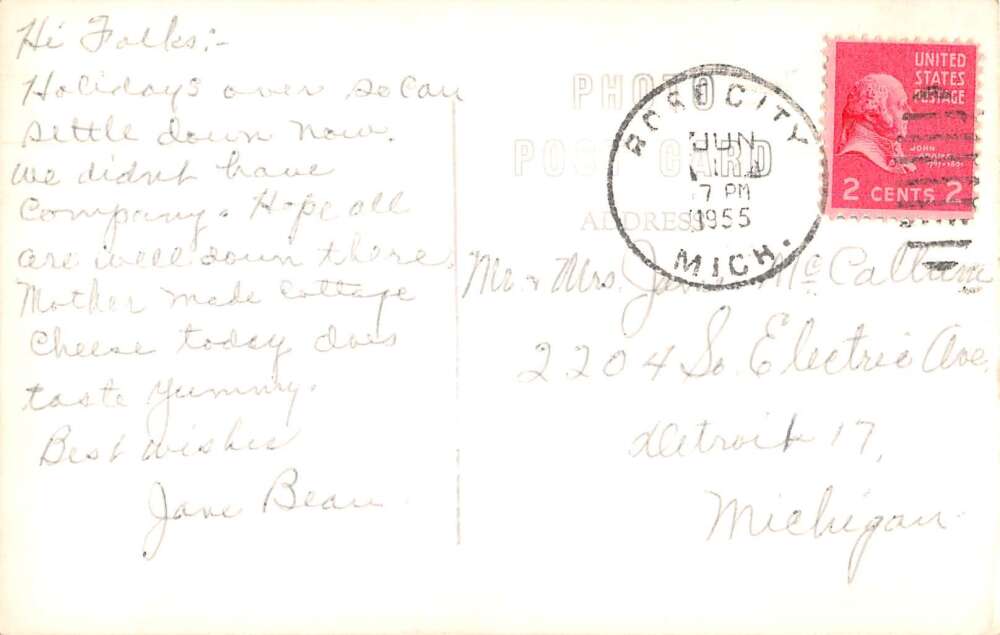 Hi Folks:-
Holidays over so can
settle down now.
We didnt have
Company. Hope all
are well down there.
Mother made Cottage
Cheese today does
taste yummy.
Best wishes
Jane Bean
PHOTO
POST CARD
ADDRESS
ROSE CITY
JUN
7 PM
1955
MICH.
UNITED
STATES
POSTAGE
JOHN
2 CENTS 2
Mr & Mrs. Mc Callum
2204 So. Electric Ave.
Detroit 17,
Michigan